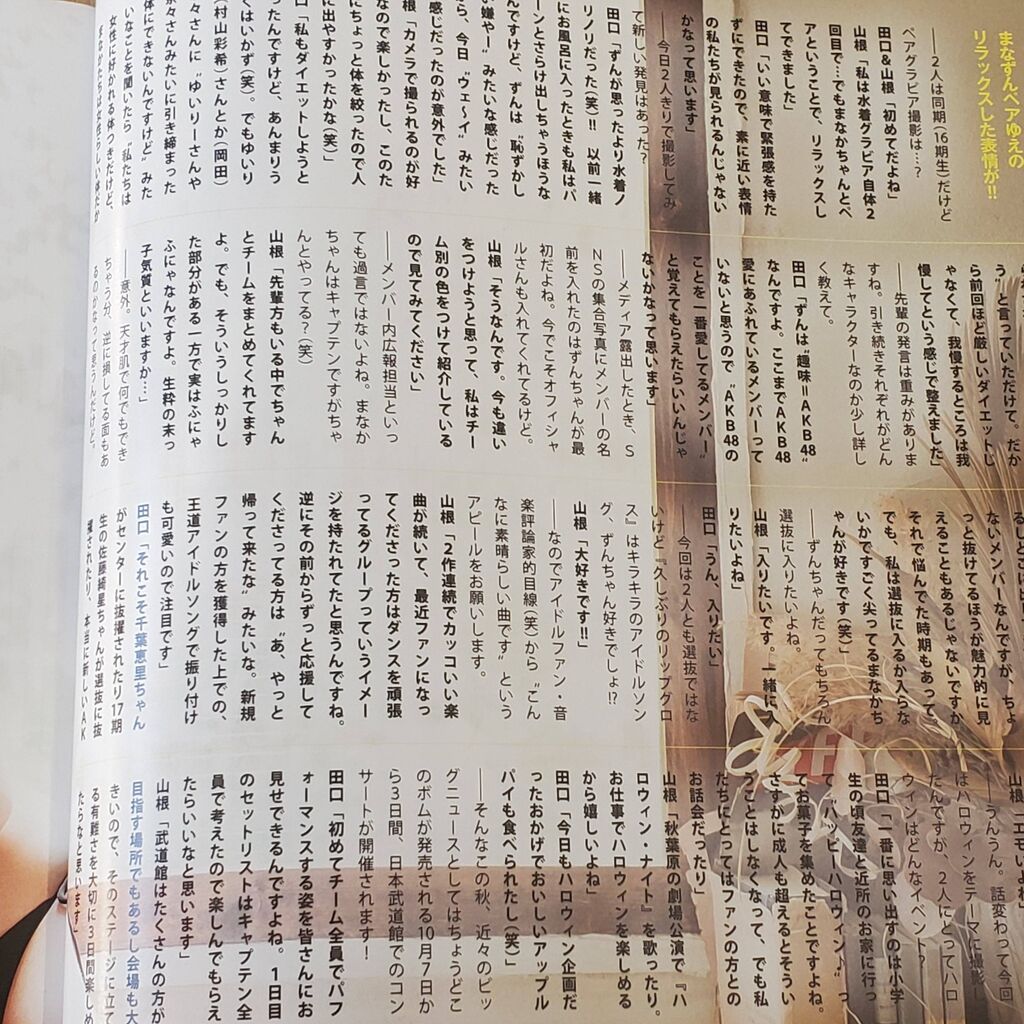 まなずんペアゆえの
リラックスした表情が!!
――2人は同期(16期生)だけど
ペアグラビア撮影は…?
田口&山根「初めてだよね」
山根「私は水着グラビア自体2
回目で…でもまなかちゃんとペ
アということで、リラックスし
てできました」
田口「いい意味で緊張感を持た
ずにできたので、素に近い表情
の私たちが見られるんじゃない
かなって思います」
――今日2人きりで撮影してみ
て新しい発見はあった?
田口「ずんが思ったより水着ノ
リノリだった(笑)!! 以前一緒
にお風呂に入ったときも私はバ
ーンとさらけ出しちゃうほうな
んですけど、ずんは〝恥ずかし
い嫌やー!〟みたいな感じだった
ら、今日〝ウェ〜イ〟みたい
感じだったのが意外でした」
根「カメラで撮られるのが好
なので楽しかったし、このた
にちょっと体を絞ったので人
に出やすかったかな(笑)」
口「私もダイエットしようと
ったんですけど、あんまりう
くはいかず(笑)。でもゆいり
(村山彩希)さんとか(岡田)
々さんみたいに引き締まった
体にできないんですけど〟みた
いなことを聞いたら〝私たちは
女性に好かれる体つきだけど、
う〟と言っていただけて。だか
ら前回ほど厳しいダイエットじ
ゃなくて、我慢するところは我
慢してという感じで整えました」
――先輩の発言は重みがありま
すね。引き続きそれぞれがどん
なキャラクターなのか少し詳し
く教えて。
田口「ずんは〝趣味=AKB48〟
なんですよ。ここまでAKB48
愛にあふれているメンバーって
いないと思うので〝AKB48の
ことを一番愛してるメンバー〟
と覚えてもらえたらいいんじゃ
ないかなって思います」
――メディア露出したとき、S
NSの集合写真にメンバーの名
前を入れたのはずんちゃんが最
初だよね。今でこそオフィシャ
ルさんも入れてくれてるけど。
山根「そうなんです。今も違い
をつけようと思って、私はチー
ム別の色をつけて紹介している
ので見てみてください」
――メンバー内広報担当といっ
ても過言ではないよね。まなか
ちゃんはキャプテンですがちゃ
んとやってる?(笑)
山根「先輩方もいる中でちゃん
とチームをまとめてくれてます
よ。でも、そういうしっかりし
た部分がある一方で実はふにゃ
ふにゃなんですよ。生粋の末っ
子気質といいますか…」
――意外。天才肌で何でもでき
ちゃう分、逆に損してる面もあ
るのかなって思うんだけど。
ないメンバーなんですが、ちょ
っと抜けてるほうが魅力的に見
えることもあるじゃないですか。
それで悩んでた時期もあって。
でも、私は選抜に入るか入らな
いかですごく尖ってるまなかち
ゃんが好きです(笑)」
――ずんちゃんだってもちろん
選抜に入りたいよね。
山根「入りたいです。一緒に入
りたいよね」
田口「うん、入りたい」
――今回は2人とも選抜ではな
いけど『久しぶりのリップグロ
ス』はキラキラのアイドルソン
グ、ずんちゃん好きでしょ!?
山根「大好きです!!」
――なのでアイドルファン・音
楽評論家的目線(笑)から〝こん
なに素晴らしい曲です〟という
アピールをお願いします。
山根「2作連続でカッコいい楽
曲が続いて、最近ファンになっ
てくださった方はダンスを頑張
ってるグループっていうイメー
ジを持たれてたと思うんですね。
逆にその前からずっと応援して
くださってる方は〝あ、やっと
帰って来たな〟みたいな。新規
ファンの方を獲得した上での、
王道アイドルソングで振り付け
も可愛いので注目です」
田口「それこそ千葉恵里ちゃん
がセンターに抜擢されたり17期
生の佐藤綺星ちゃんが選抜に抜
擢されたり、本当に新しいAK
――うんうん。話変わって今回
はハロウィンをテーマに撮影し
たんですが、2人にとってハロ
ウィンはどんなイベント?
田口「一番に思い出すのは小学
生の頃友達と近所のお家に行っ
て〝ハッピーハロウィン♪〟っ
てお菓子を集めたことですよね。
さすがに成人も超えるとそうい
うことはしなくなって、でも私
たちにとってはファンの方との
お話会だったり」
山根「秋葉原の劇場公演で『ハ
ロウィン・ナイト』を歌ったり。
お仕事でハロウィンを楽しめる
から嬉しいよね」
田口「今日もハロウィン企画だ
ったおかげでおいしいアップル
パイも食べられたし(笑)」
――そんなこの秋、近々のビッ
グニュースとしてはちょうどこ
のボムが発売される10月7日か
ら3日間、日本武道館でのコン
サートが開催されます!
田口「初めてチーム全員でパフ
ォーマンスする姿を皆さんにお
見せできるんですよね。1日目
のセットリストはキャプテン全
員で考えたので楽しんでもらえ
たらいいなと思います」
山根「武道館はたくさんの方が
目指す場所でもあるし会場も大
きいので、そのステージに立て
る有難さを大切に3日間楽しめ
たらなと思います」